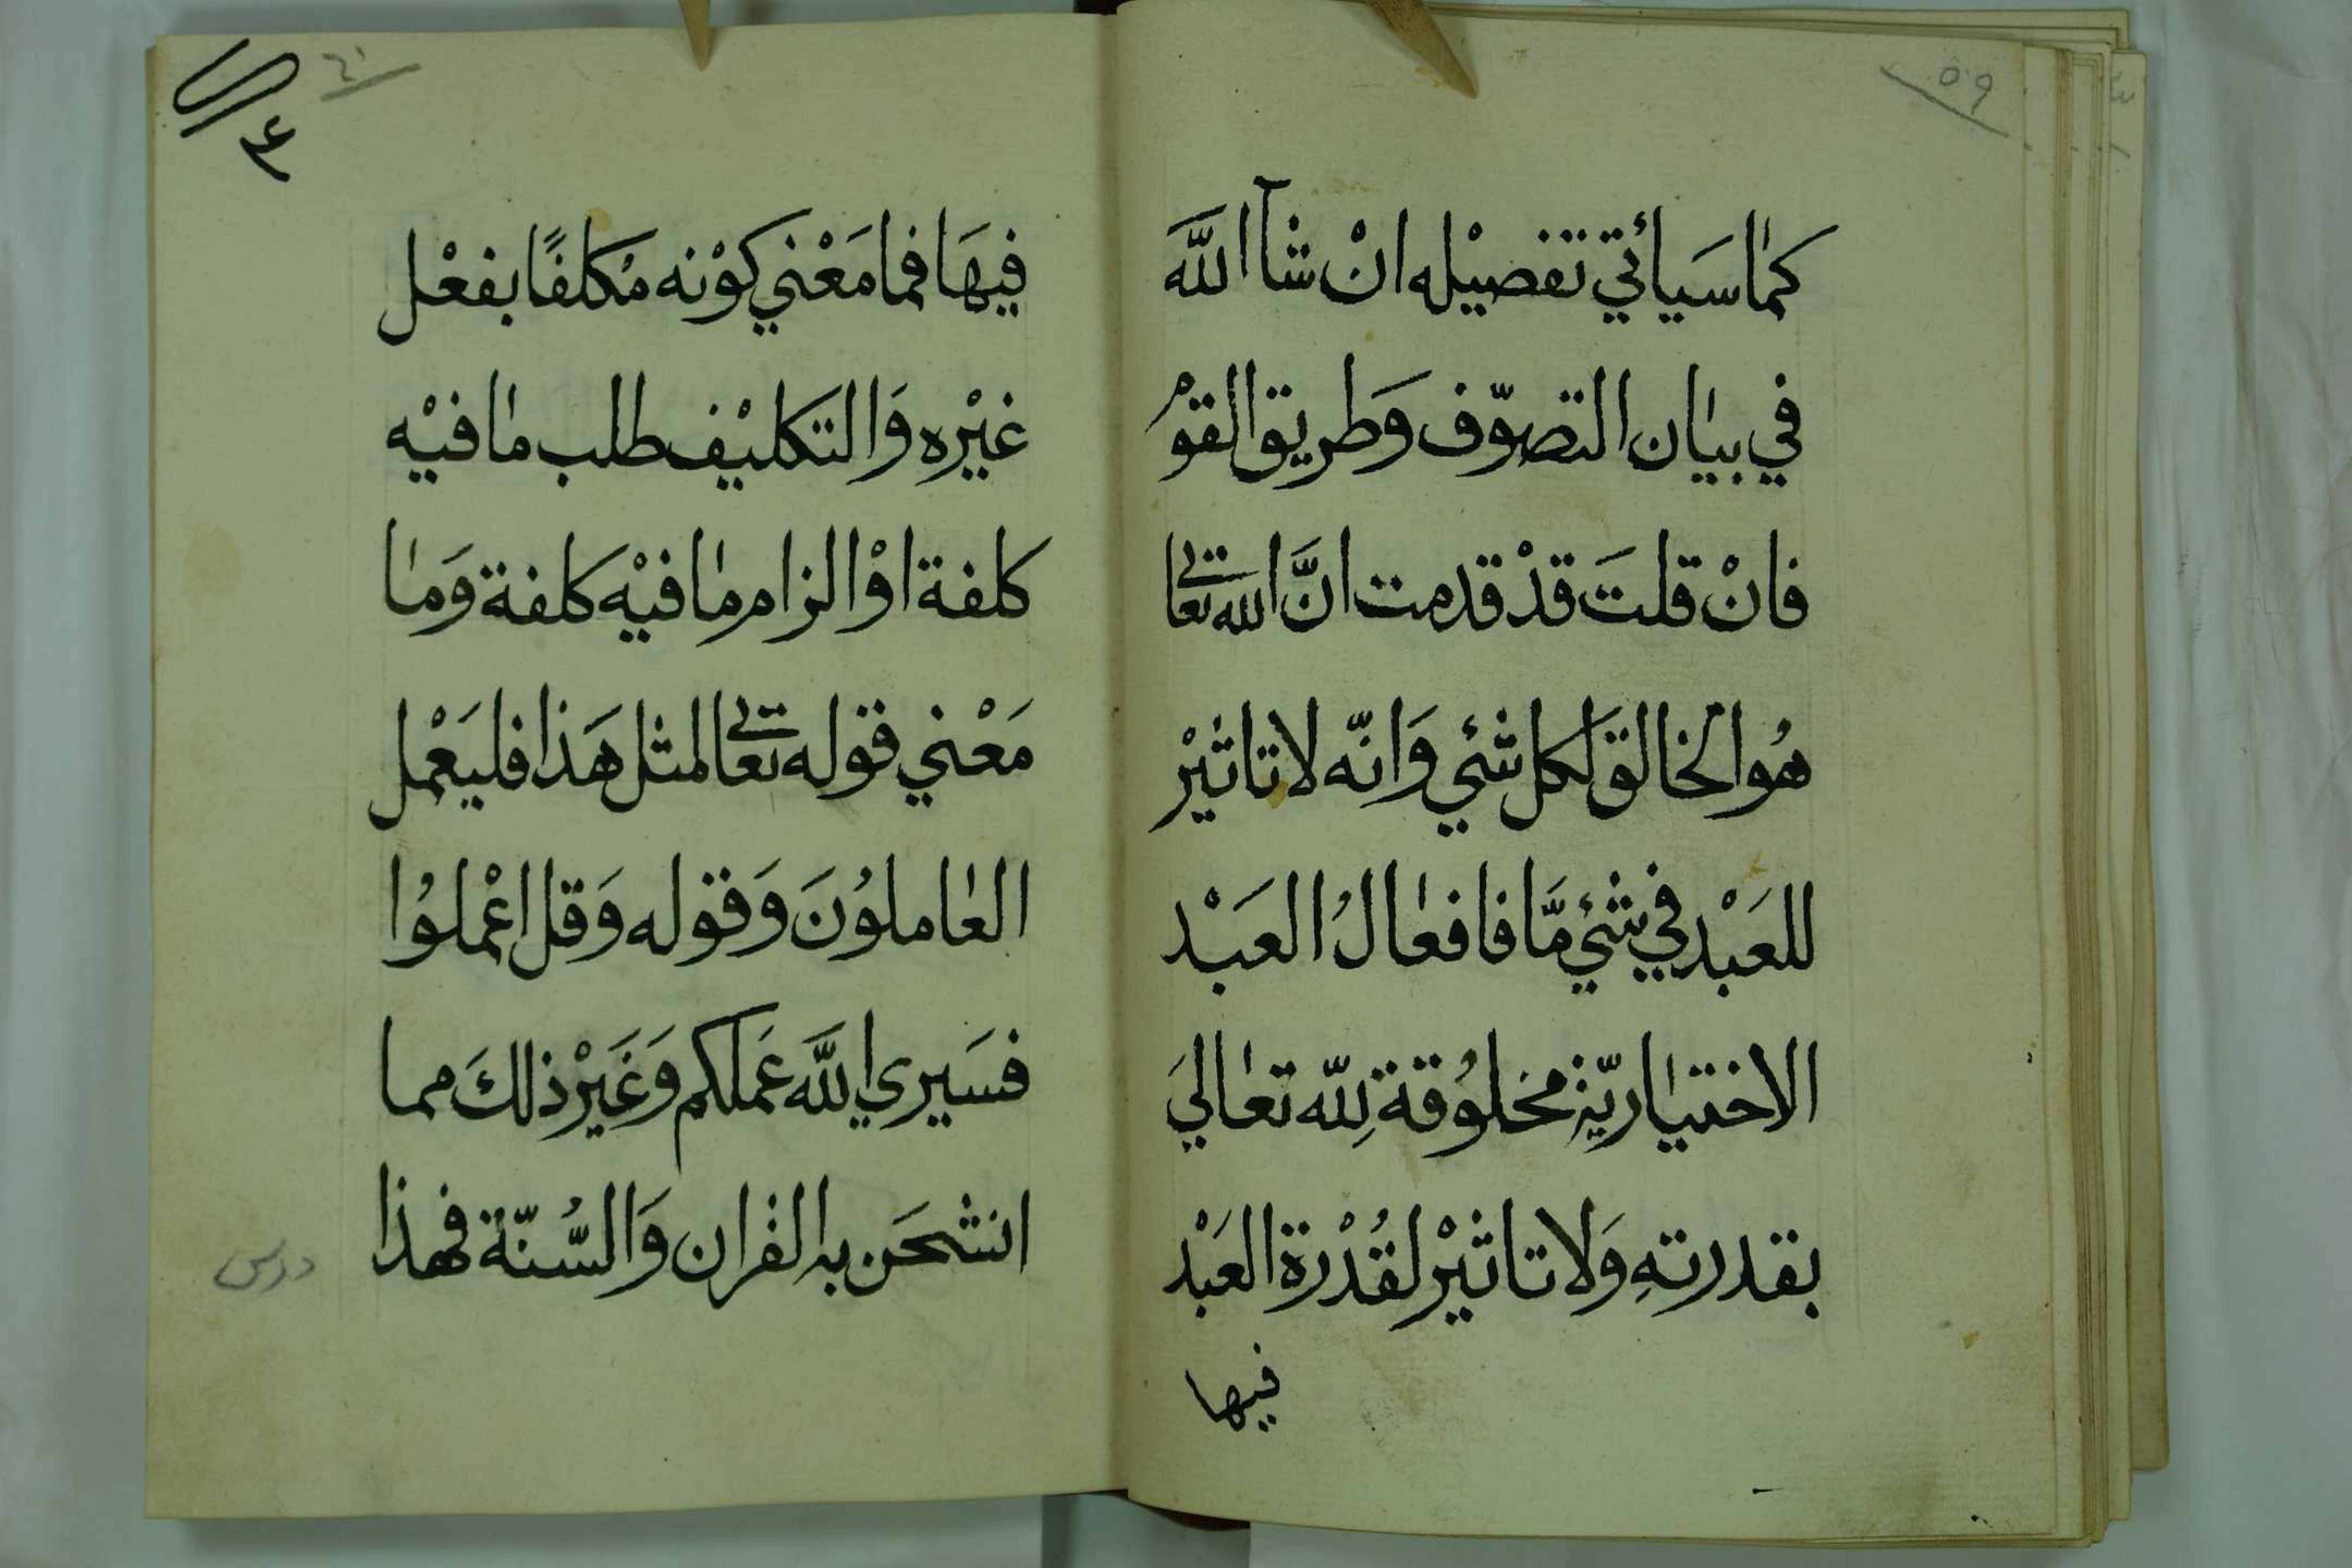 ٥٩
كمٰا سَيأتي تفصيْله انْ شآا للَّه
في بيٰان التصوّف وَطريق القوْم
فانْ قلتَ قدْ قدمت انَّ الله تعالى
هُوا لخالق لكل شئي وَانّه لا تاثيْر
للعَبْد في شئي مَّا فافعٰالُ العَبْد
الاختيٰاريّة مخلوُقة لِلّه تعٰاليَ
بقدرتهِ وَلا تاثيْر لقُدْرة العَبْد
فيها
٦٠
فيهَا فما مَعْني كوْنه مُكلفًا بفعْل
غيْره وَالتكليْف طلب مٰا فيْه
كلفة اوْ الزام مٰا فيْه كلفة وَمٰا
مَعْني قوله تعالى لمثل هَذا فليَعْمل
العٰاملوُنَ وَقوله وَقل اعْملوُا
فسَيري اللَّه عَملكم وَغَيْر ذلكَ مما
انشحَن به القرٰان وَالسُّنّة فهذا
درس